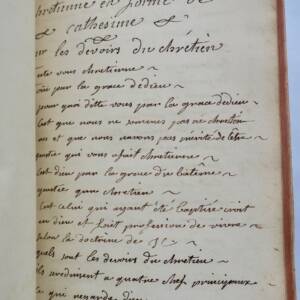 hretienne en forme de
cathesime et
ur les devoirs du chrétien
ente vous chretienne
oüie pour la grace de dieu
pour quoi ditte vous pour la grace de dieu
est que nous ne sommes pas ne chretien
ns et que nous navons pas mérité de letre
quesce qui vous afait chretienne
est dieu par la grace du batême
quesce quun chretien
est celui qui ayant été baptisé croit
en dieu et fait profession de vivre
selon la doctrine de
quels sont les devoirs du chretien
ils se reduisent a quatre chef principaux
ce qui regarde dieu